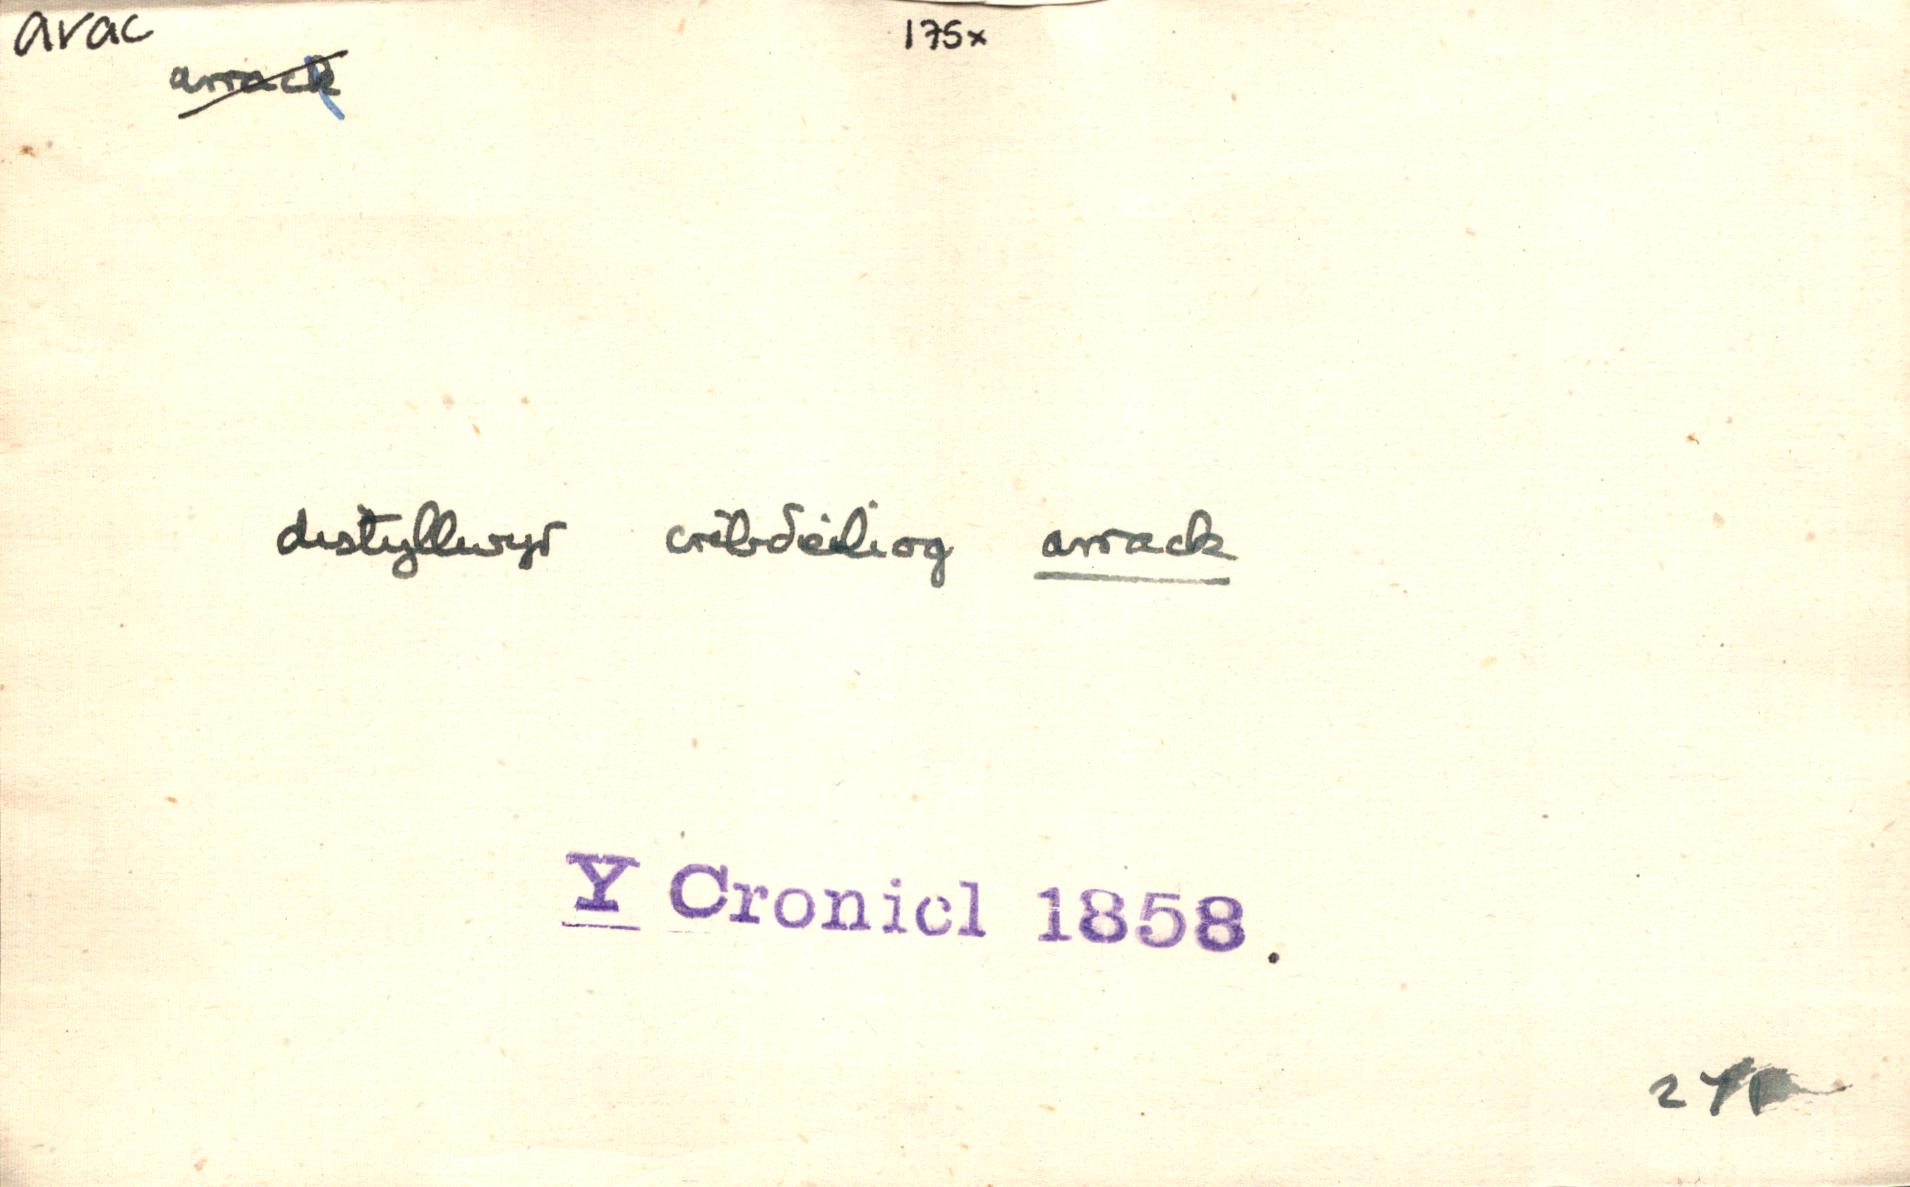 arac
175x
arrack
distyllwyr cribdeiliog arrack
Y Cronicl 1858.